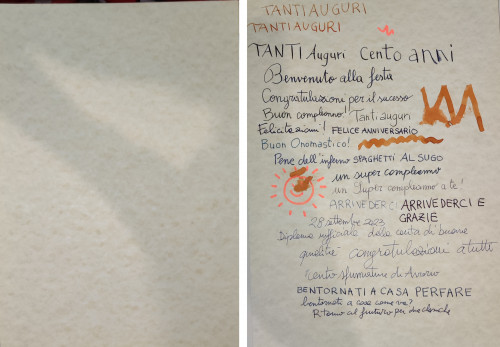 TANTI AUGURI
TANTI AUGURI
TANTI Auguri Cento anni
Benvenuto alla festa
Congratulazioni per il successo
Buon compleanno! Tanti auguri
Felicitazioni! FELICE ANNIVERSARIO
Buon Onomastico!
Pene dell'inferno SPAGHETTI AL SUGO
un super compleanno
un super compleanno a te!
ARRIVEDERCI ARRIVEDERCI E
GRAZIE
28 settembre 2023
Diploma ufficiale della carta di buone
qualità congratulazioni a tutti
cento sfumature di
BENTORNATI A CASA PERFARE
bentornati a casa come va?
Ritorno al futuro per